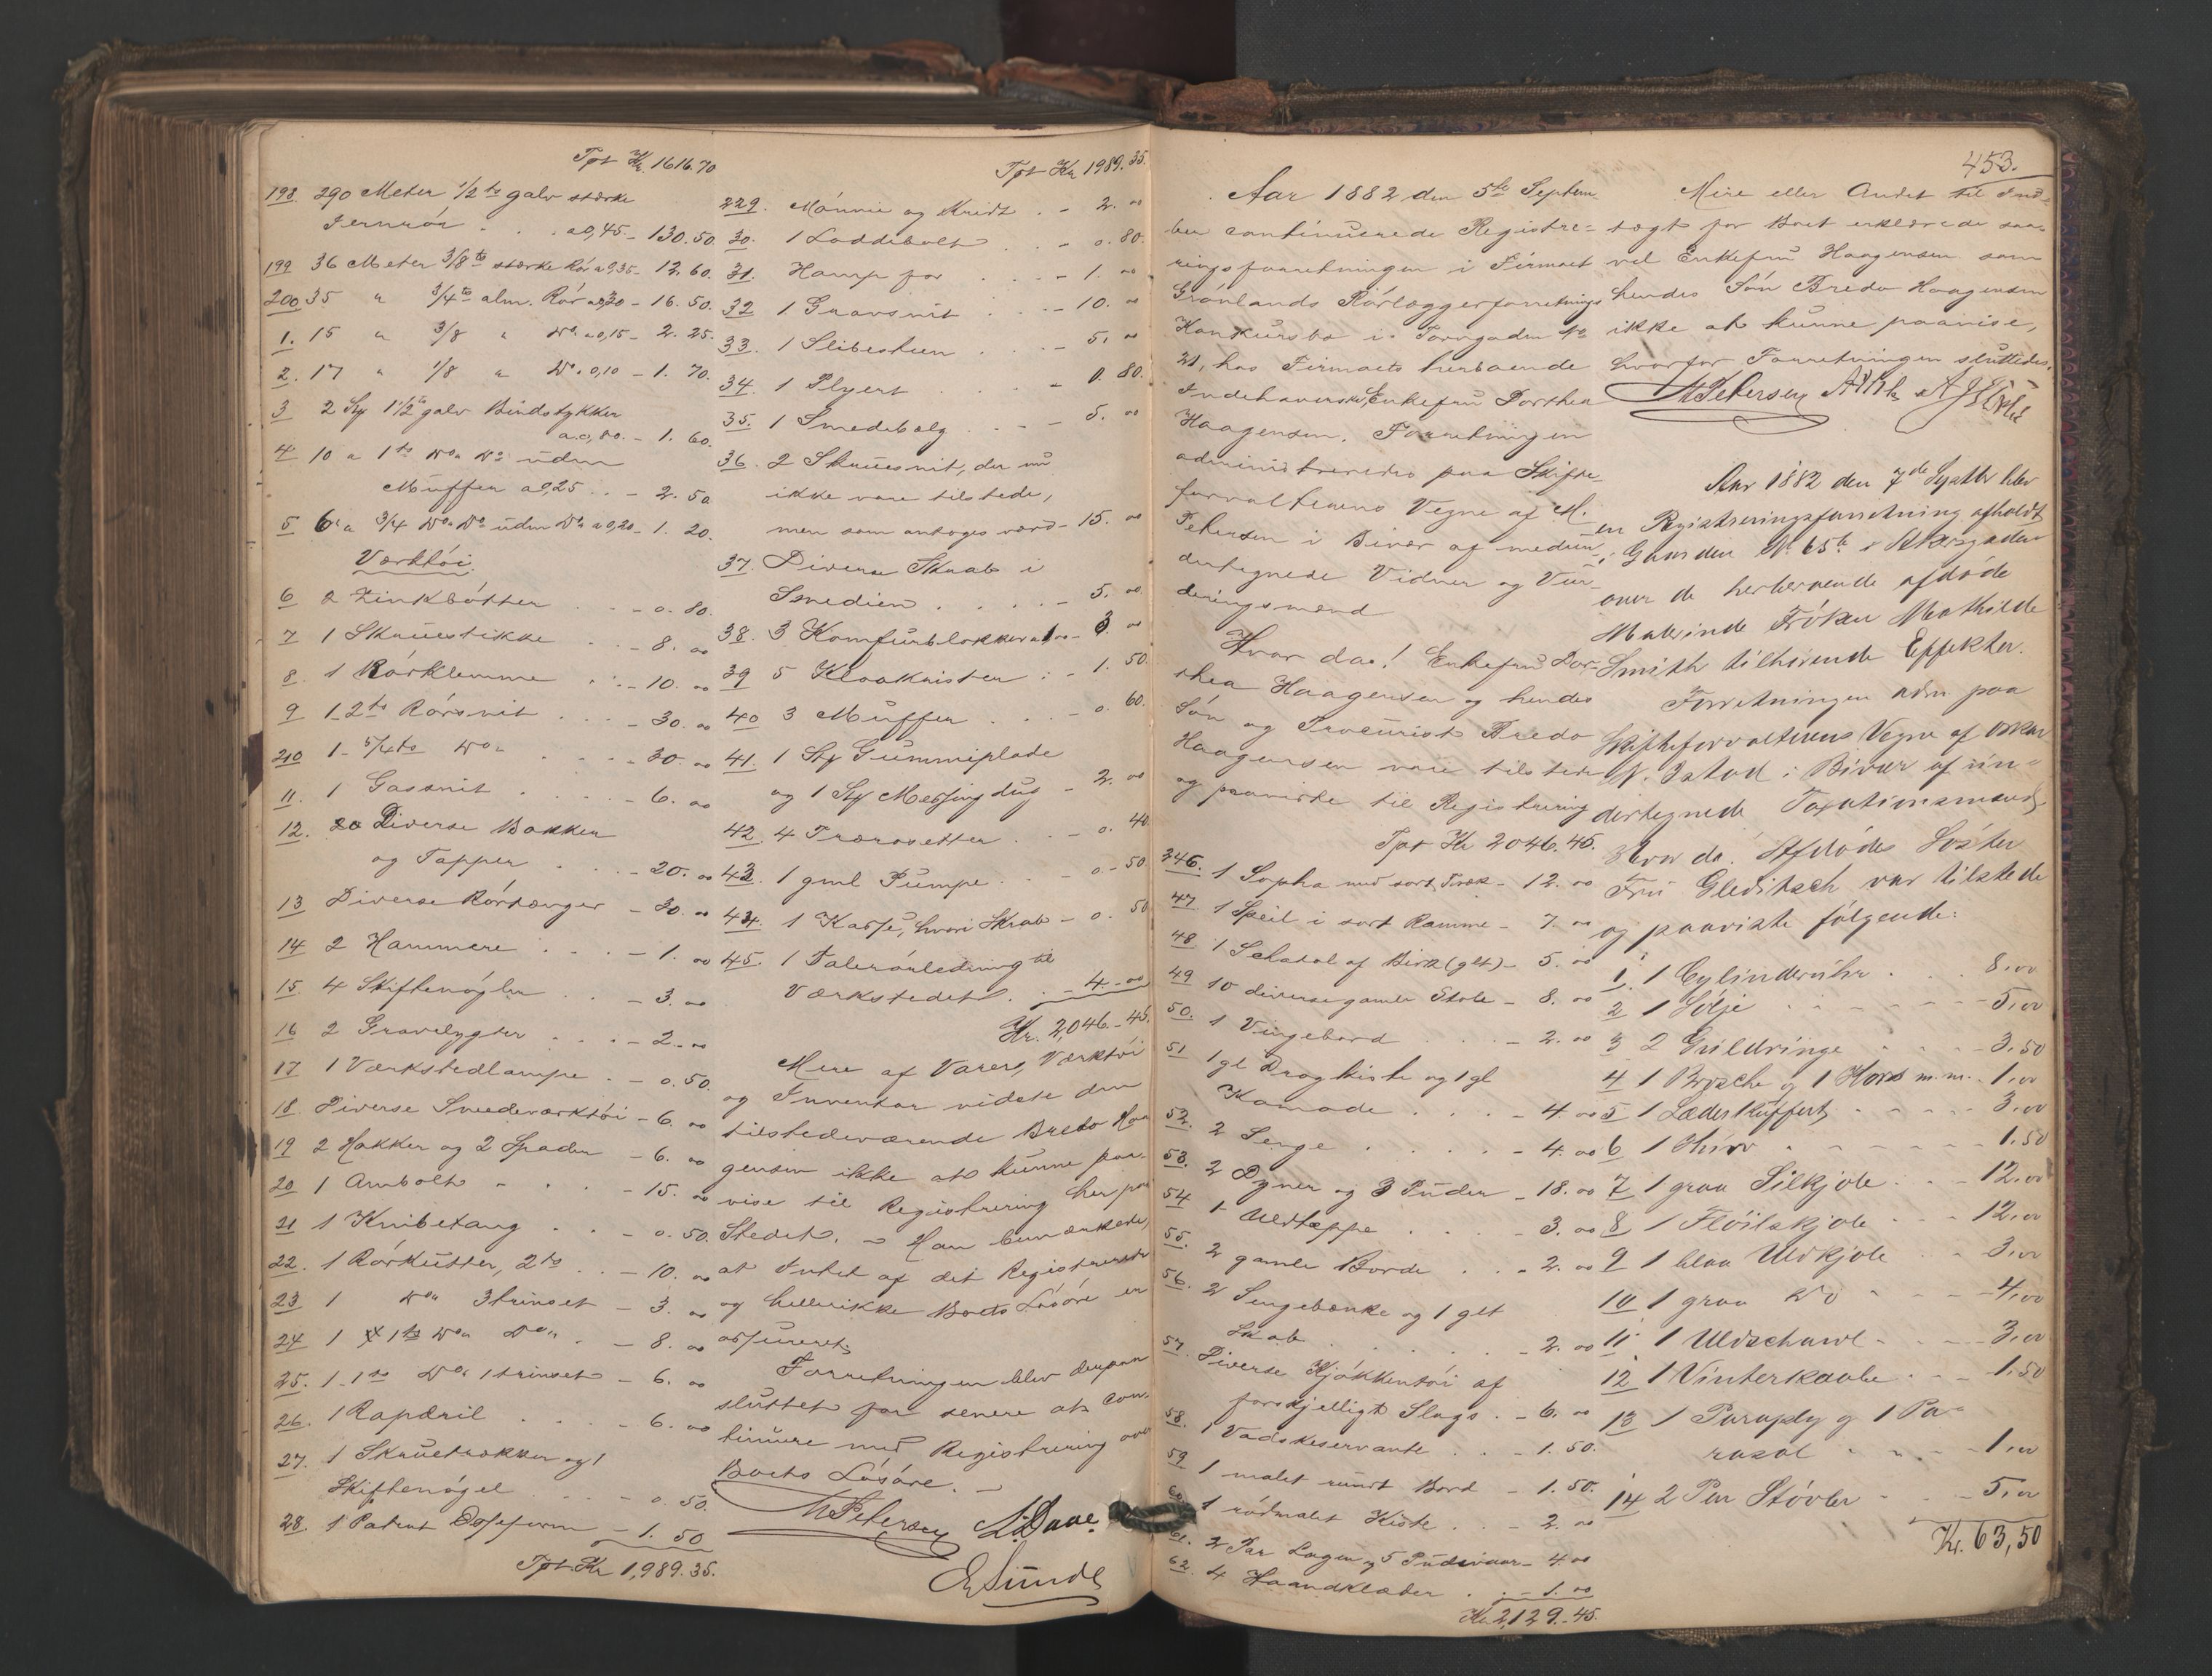 Tpt Kr. 1616.70
198. 290 Meter 1/2 to galv stærke
Jernrör . . a 0,45 - 130.50.
199 36 Meter 3/8 to stærke Rör a 0,35 - 12.60.
200 35 " 3/4 to alm. Rör a 0,30 - 16.50.
1. 15 " 3/8 " Do a 0,15 - 2.25.
2. 17 " 1/8 " Do a 0,10 - 1.70.
3 2 Stk 1 1/2 to galv Bindstykker
a 0,80. - 1.60.
4 10 " 1 to Do Do uden
Muffer a 0,25 . . - 2.50
5 6 " 3/4 Do Do uden Do a 0,20 - 1.20.
Værktöi.
6 2 Zinkbötter . . - 0.80.
7 1 Skruestikke . . - 8.00
8. 1 Rörklemme . . - 10.00
9 1 - 2 to Rörsnit . . . - 30.00
210 1 - 5/4 to Do . . . - 30.00
11. 1 Gassnit . . . . - 6.00
12. Diverse Bakker
og Tapper . . . - 20.00
13 Diverse Rörtænger - 30.00
14 2 Hammere . . . - 1.00
15. 4 Skiftenögler . . - 3.00
16 2 Gravelygter . . . - 2.00
17 1 Værkstedlampe . - 0.50.
18. Diverse Smedeværktöi - 6.00
19 2 Hakker og 2 Spader - 6.00
20 1 Ambolt . . . - 15.00
21 1 Knibetang . . - 0.50.
22. 1 Rörkutter, 2 to . . - 10.00
23 1 Do 3trinset - 3.00
24 1 1 to Do Do . - 8.00
25. 1 - 1 to Do 1trinset - 6.00
26. 1 Rapdril . . . - 6.00
27. 1 Skruetrækker og 1
Skiftenögel . . . - 0.50.
28. 1 Patent - 1.50
Tpt. Kr 1,989.35.
Tpt Kr 1989.35.
229. Mönnie og Kridt . - 2.00
30. 1 Loddebolt . . - 0.80.
31. Hamp for . . . - 1.00
32 1 Gravsnit . . . - 10.00
33. 1 Slibesteen . . . - 5.00
34. 1 Plyert . . . - 0.80.
35. 1 Smedebælg . . . - 5.00
36. 2 Skruesnit, der nu
ikke vare tilstede,
men som antoges værd - 15.00
37. Diverse Skrab i
Smedien . . . . . - 5.00
38. 3 Komfurblokker a 1.00 - 3.00
39 5 Kloakrister . . - 1.50.
40 3 Muffer . . . - 0.60.
41. 1 Stk Gummiplade
og 1 Stk Messingdug - 2.00
42. 4 Trærosetter . - 0.40
43. 1 gml Pumpe . . . - 0.50
44. 1 Kasse, hvori Skrab - 0.50
45. 1 Talerörledning til
Værkstedet . . - 4.00
Kr. 2,046.45.
Mere af Varer, Værktöi
og Inventar vidste den
tilstedeværende Bredo Haa
gensen ikke at kunne paa-
vise til Registrering her paa
Stedet. - Han bemærkede,
at Intet af det Registrerede
og hellerikke Boets Lösöre er
assureret.
Forretningen blev derpaa
sluttet for senere at con-
tinuere med Registrering over
Boets Lösöre. -
M Petersen L. Daae.
E Sunde
453.
Aar 1882 den 5te Septem-
ber continuerede Registre-
ringsforretningen i Firmaet
Grönlands Rörlæggerforretnings
Konkursbo i Torvgaden No
21, hos Firmaets herboende
Indehaverske, Enkefru Dorthea
Haagensen. Forretningen
administreredes paa Skifte-
forvalterens Vegne af M.
Petersen i Bivær af medun-
dertegnede Vidner og Vur-
deringsmænd
Hvor da! Enkefru Dor-
thea Haagensen og hendes
Sön og Procurist Bredo
Haagensen vare tilstede
og paaviste til Registrering
Tpt Kr 2046.45.
246. 1 Sopha med sort Træk - 12.00
47. 1 Speil i sort Ramme - 7.00
48 1 Schatol af Birk (glt) - 5.00
49 10 diverse gamle Stole - 8.00
50. 1 Vingebord . . . - 2.00
51 1 gl Dragkiste og 1 gl
Komode . . . . - 4.00
52. 2 Senge . . . . - 4.00
53. 2 Dyner og 3 Puder - 18.00
54 1 Uldtæppe . . . 3.00
55. 2 gamle Borde . . - 2.00
56. 2 Sengebænke og 1 glt
Skab . . . . . - 2.00
57. Diverse Kjökkentöi af
forskjelligt Slags . - 6.00
58. 1 Vadskeservante . . - 1.50.
59 1 malet rundt Bord - 1.50.
60 1 rödmalet Kiste . . - 2.00
61. 2 Par Lagen og 5 Pudevaar - 4.00
62. 4 Haandklæder . . - 1.00
Kr. 2,129.45.
Mere eller Andet til Ind-
tægt for Boet erklærede saa-
vel Enkefru Haagensen som
hendes Sön Bredo Haagensen
ikke at kunne paavise,
hvorfor Forretningen sluttedes.
M Petersen
Aar 1882 den 7de Septbr blev
en Registreringsforretning afholdt
i Gaarden No 65b i Akersgaden
over de herboende afdöde
Malerinde Fröken Mathilde
Smith tilhörende Effekter.
Forretningen adm paa
Skifteforvalterens Vegne af Oskar
N. Ystad i Bivær af un-
dertegnede Taxationsmænd.
Hvor da. Afdödes Söster
Fru Gleditsch var tilstede
og paaviste fölgende:
1. 1 Cylinderuhr . . . 8,00
2 1 Sölje . . . . . 5,00
3 2 Guldringe . . . 3,50
4 1 Brosche og 1 Kors m.m. 1,00
5 1 Læderkuffert . . . 3,00
6 1 Skrin . . . . 1.50
7 1 graa Silkjole . . - 12,00
8 1 Flöilskjole . . - 12,00
9 1 blaa Uldkjole . . 3,00
10 1 graa Do . . . 4,00
11 1 Uldschawl . . . 3,00
12 1 Vinterkaabe . . . 1.50
13 1 Paraply og 1 Pa-
rasol . . . . 1,00
14 2 Par Stövler . . 5,00
Kr. 63,50